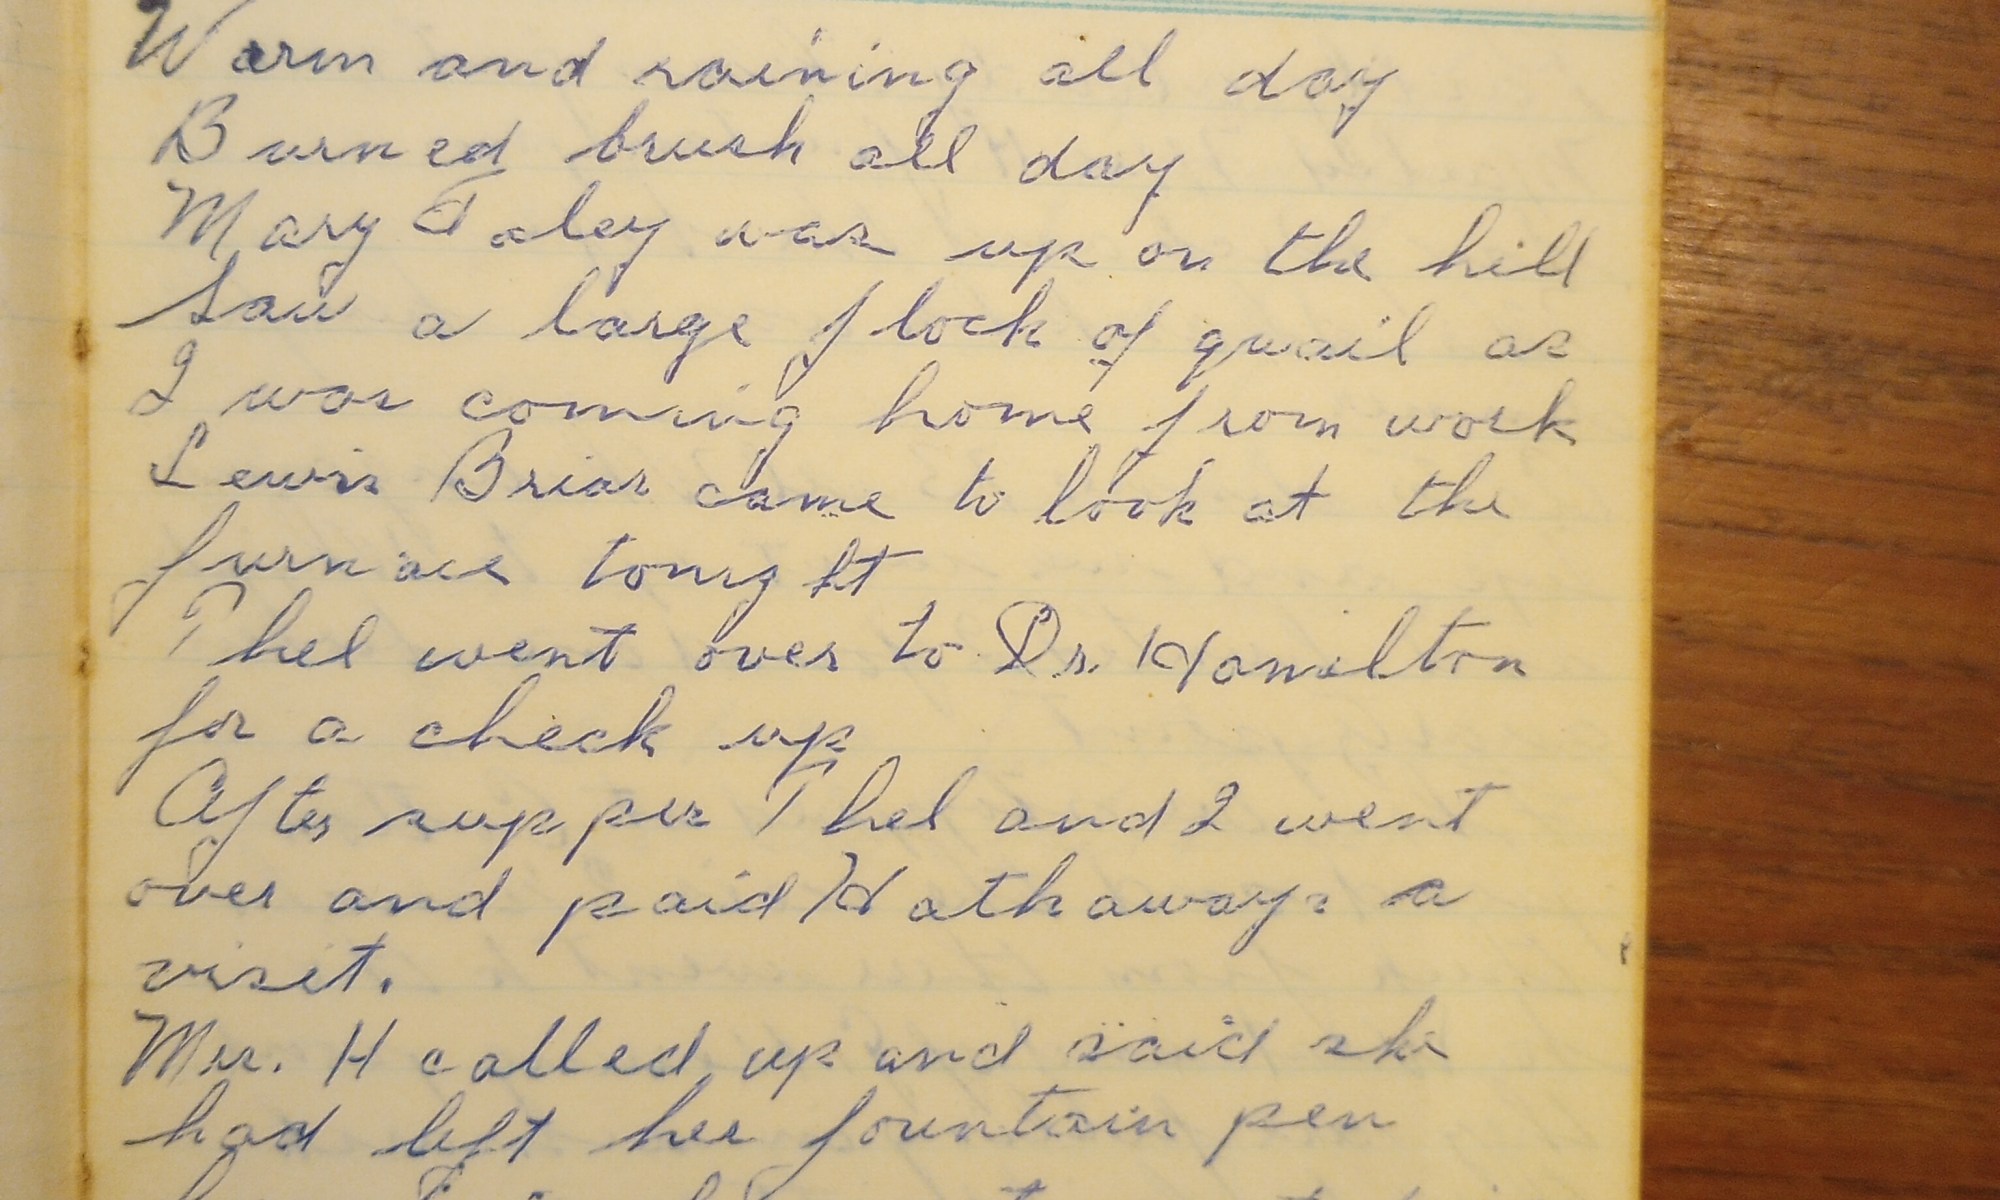 Warm and raining all day
Burned brush all day
Mary Foley was up on the hill
Saw a large flock of quail as
I was coming home from work
Lewis Briar came to look at the
furnace tonight
Thel went over to Dr. Hamilton
for a check up
After supper Thel and I went
over and paid Hathaways a
visit.
Mrs. H called up and said she
had left her fountain pen